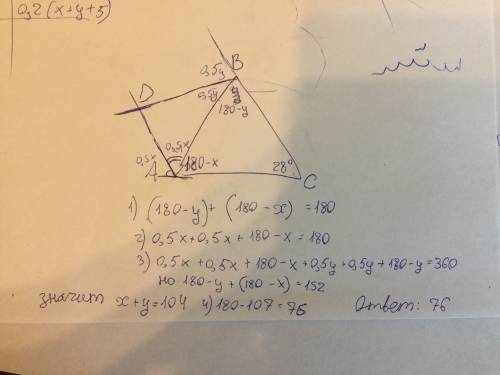 0,2(x+y+5)
B
0,5y
D
0,5y
y
180-y
0,5x
0,5x
A
180-x
28°
C
1) (180-y)+(180-x)=180
2) 0,5x+0,5x+180-x=180
3) 0,5x+0,5x+180-x+0,5y+0,5y+180-y=360
но 180-y+(180-x)=152
значит x+y=104 4) 180-107=76 Ответ: 76